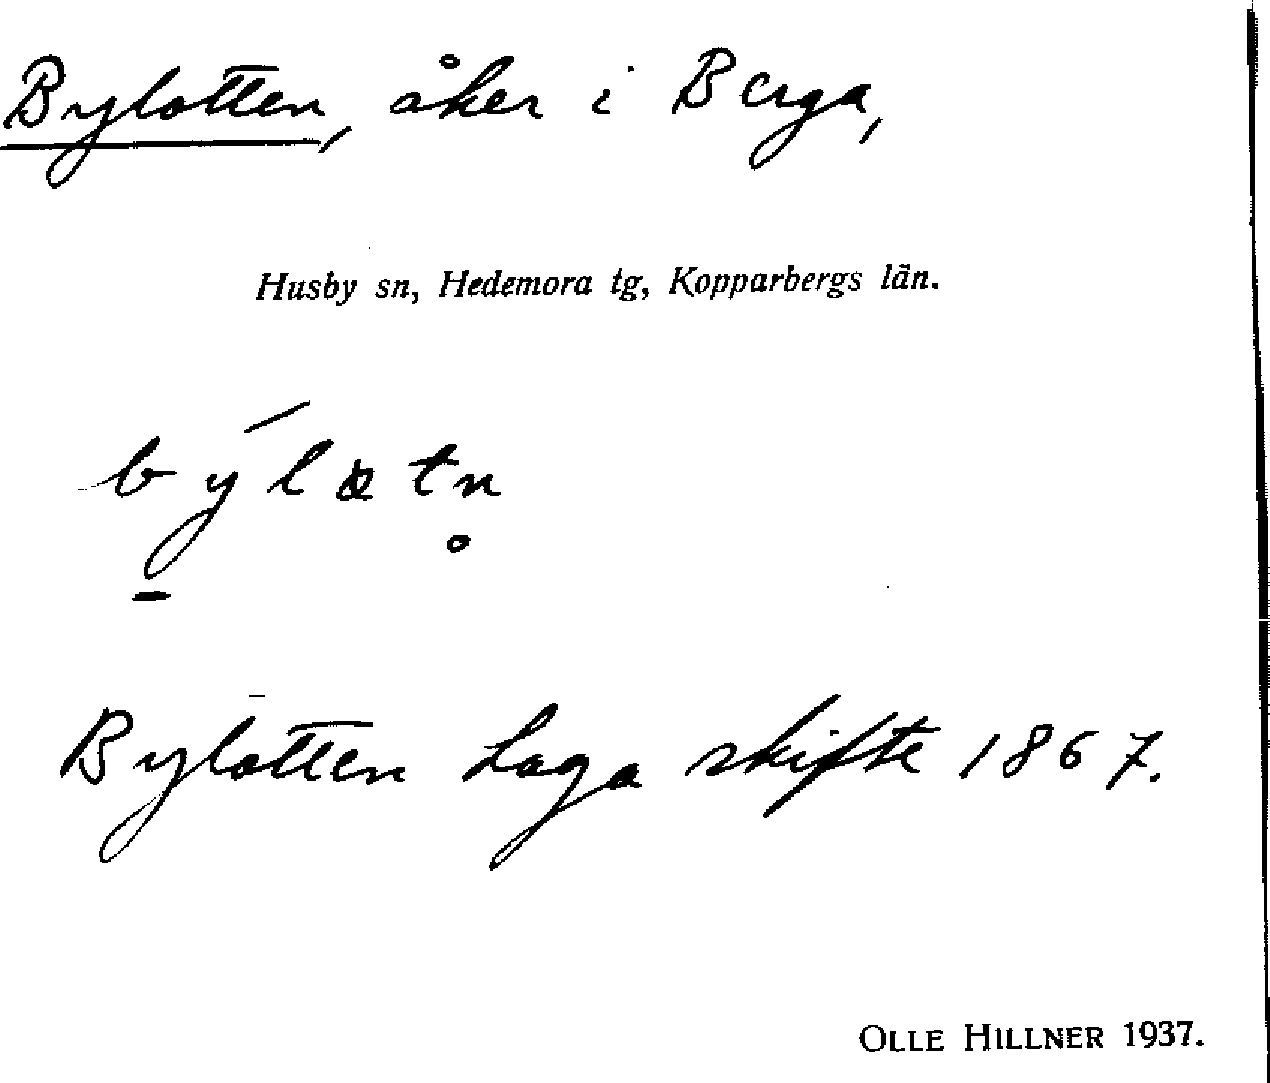 Bylotten, åker i Berga,
Husby sn, Hedemora tg, Kopparbergs län.
Bylotten Laga skifte 1867.
OLLE HILLNER 1937.